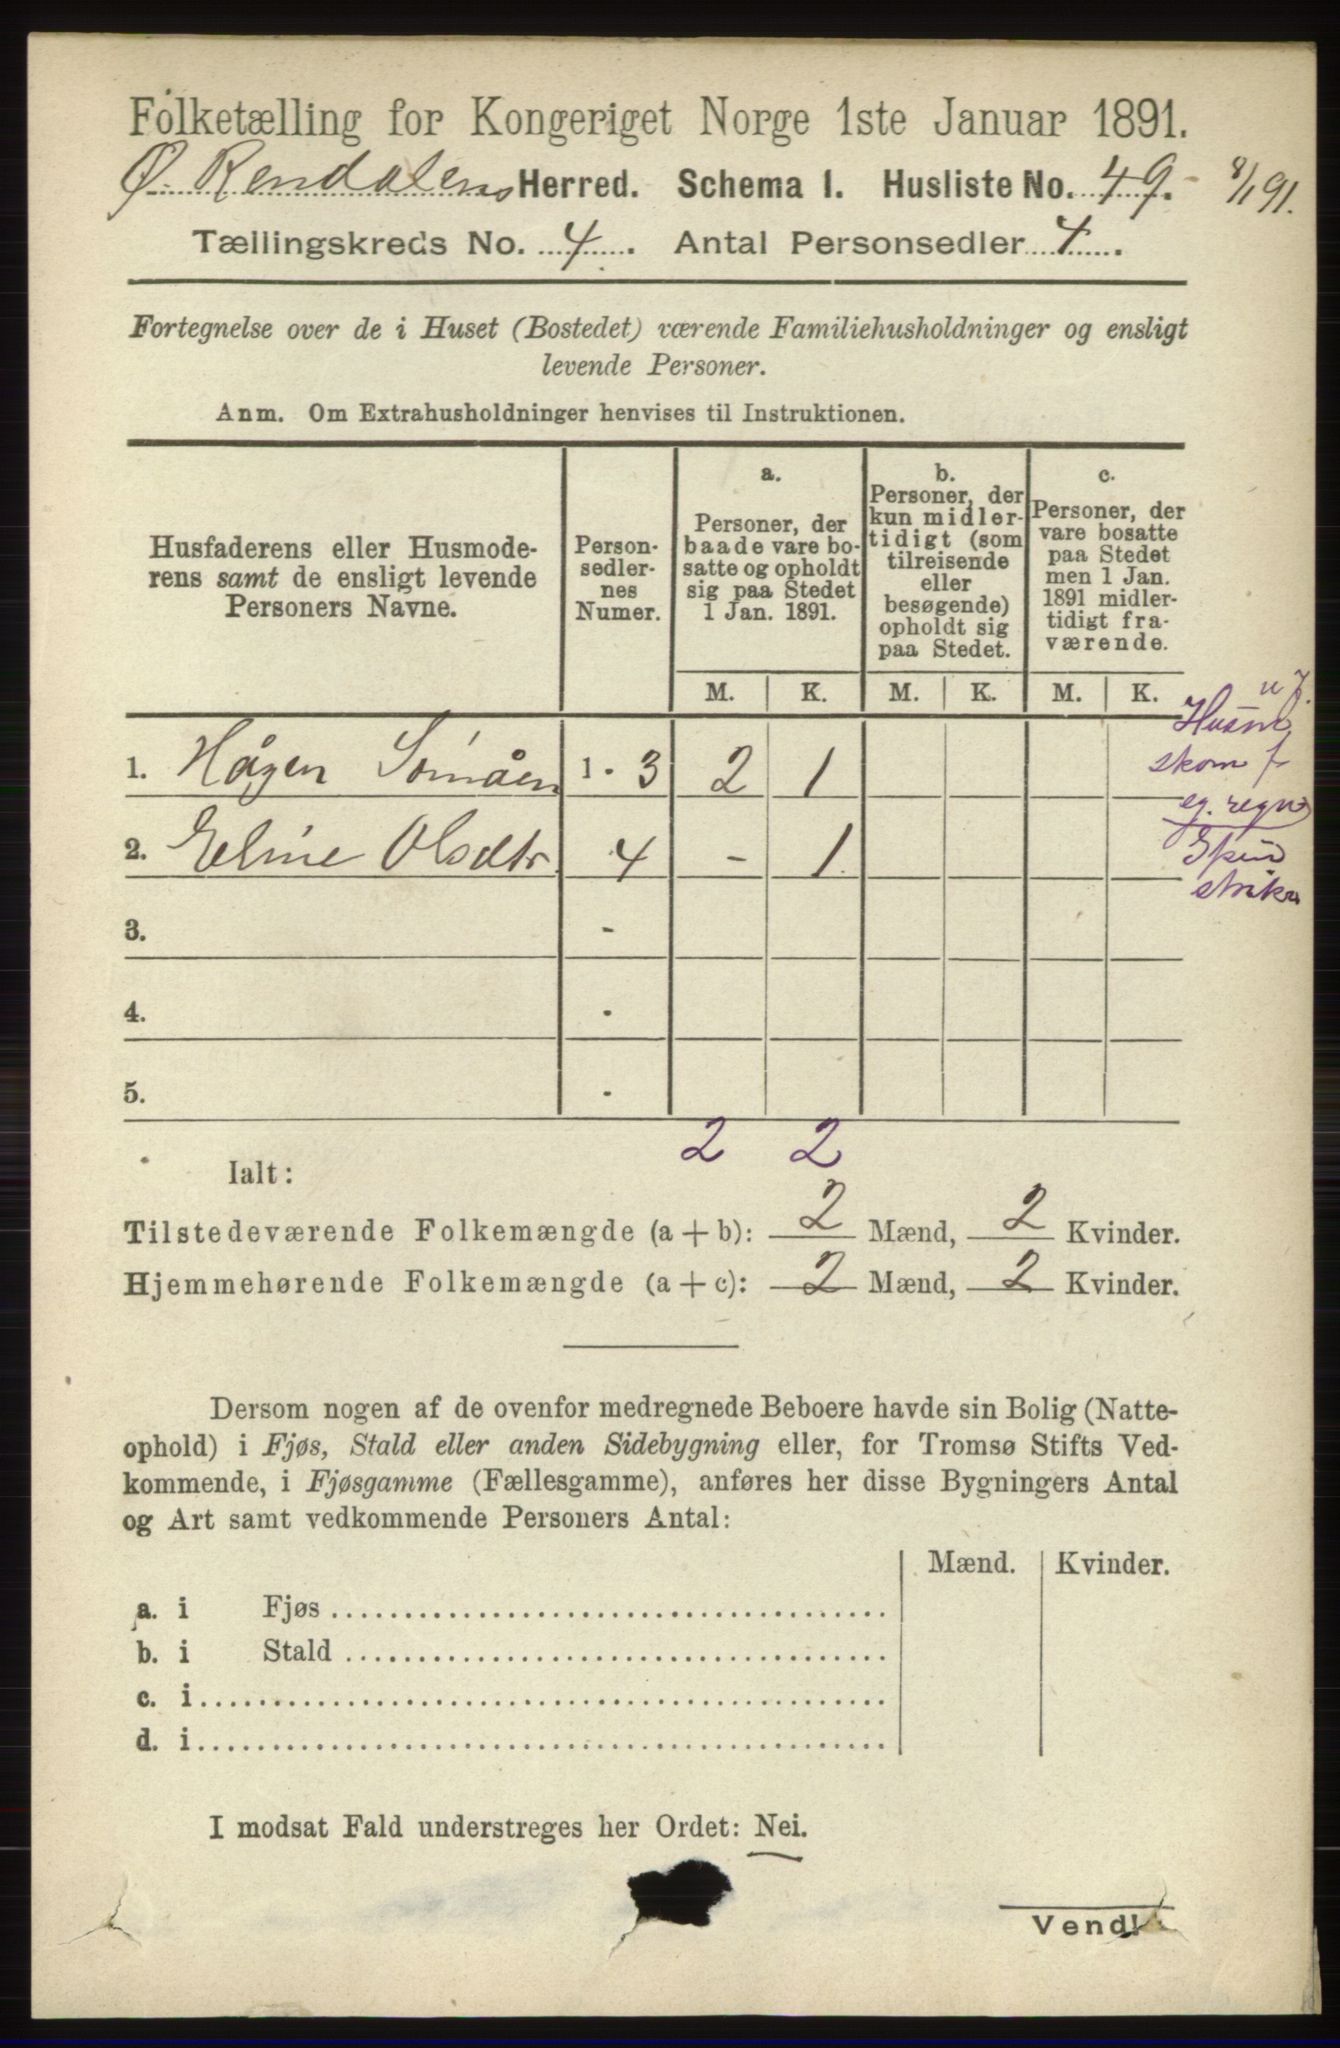 Folketælling for Kongeriget Norge 1ste Januar 1891.
Ø. Rendalens Herred. Schema 1. Husliste No. 49. 8/1 91.
Tællingskreds No. 4. Antal Personsedler 4.
Fortegnelse over de i Huset (Bostedet) værende Familiehusholdninger og ensligt
levende Personer.
Anm. Om Extrahusholdninger henvises til Instruktionen.
Husfaderens eller Husmode-
rens samt de ensligt levende
Personers Navne.
Person-
sedler-
nes
Numer.
a.
Personer, der
baade vare bo-
satte og opholdt
sig paa Stedet
1 Jan. 1891.
b.
Personer, der
kun midler-
tidigt (som
tilreisende
eller
besøgende)
opholdt sig
paa Stedet.
c.
Personer, der
vare bosatte
paa Stedet
men 1 Jan.
1891 midler-
tidigt fra-
værende.
M. K. M. K. M. K.
1. Hågen Sømåen 1 - 3 2 1
Husm
skom f
eg. regn
2. Eline Olsdtr 4 - 1
Spin
strik
3. -
4. -
5. -
2 2
Ialt:
Tilstedeværende Folkemængde (a + b): 2 Mænd, 2 Kvinder.
Hjemmehørende Folkemængde (a + c): 2 Mænd, 2 Kvinder.
Dersom nogen af de ovenfor medregnede Beboere havde sin Bolig (Natte-
ophold) i Fjøs, Stald eller anden Sidebygning eller, for Tromsø Stifts Ved-
kommende, i Fjøsgamme (Fællesgamme), anføres her disse Bygningers Antal
og Art samt vedkommende Personers Antal:
Mænd. Kvinder.
a. i Fjøs
b. i Stald
c. i
d. i
I modsat Fald understreges her Ordet: Nei.
Vend!